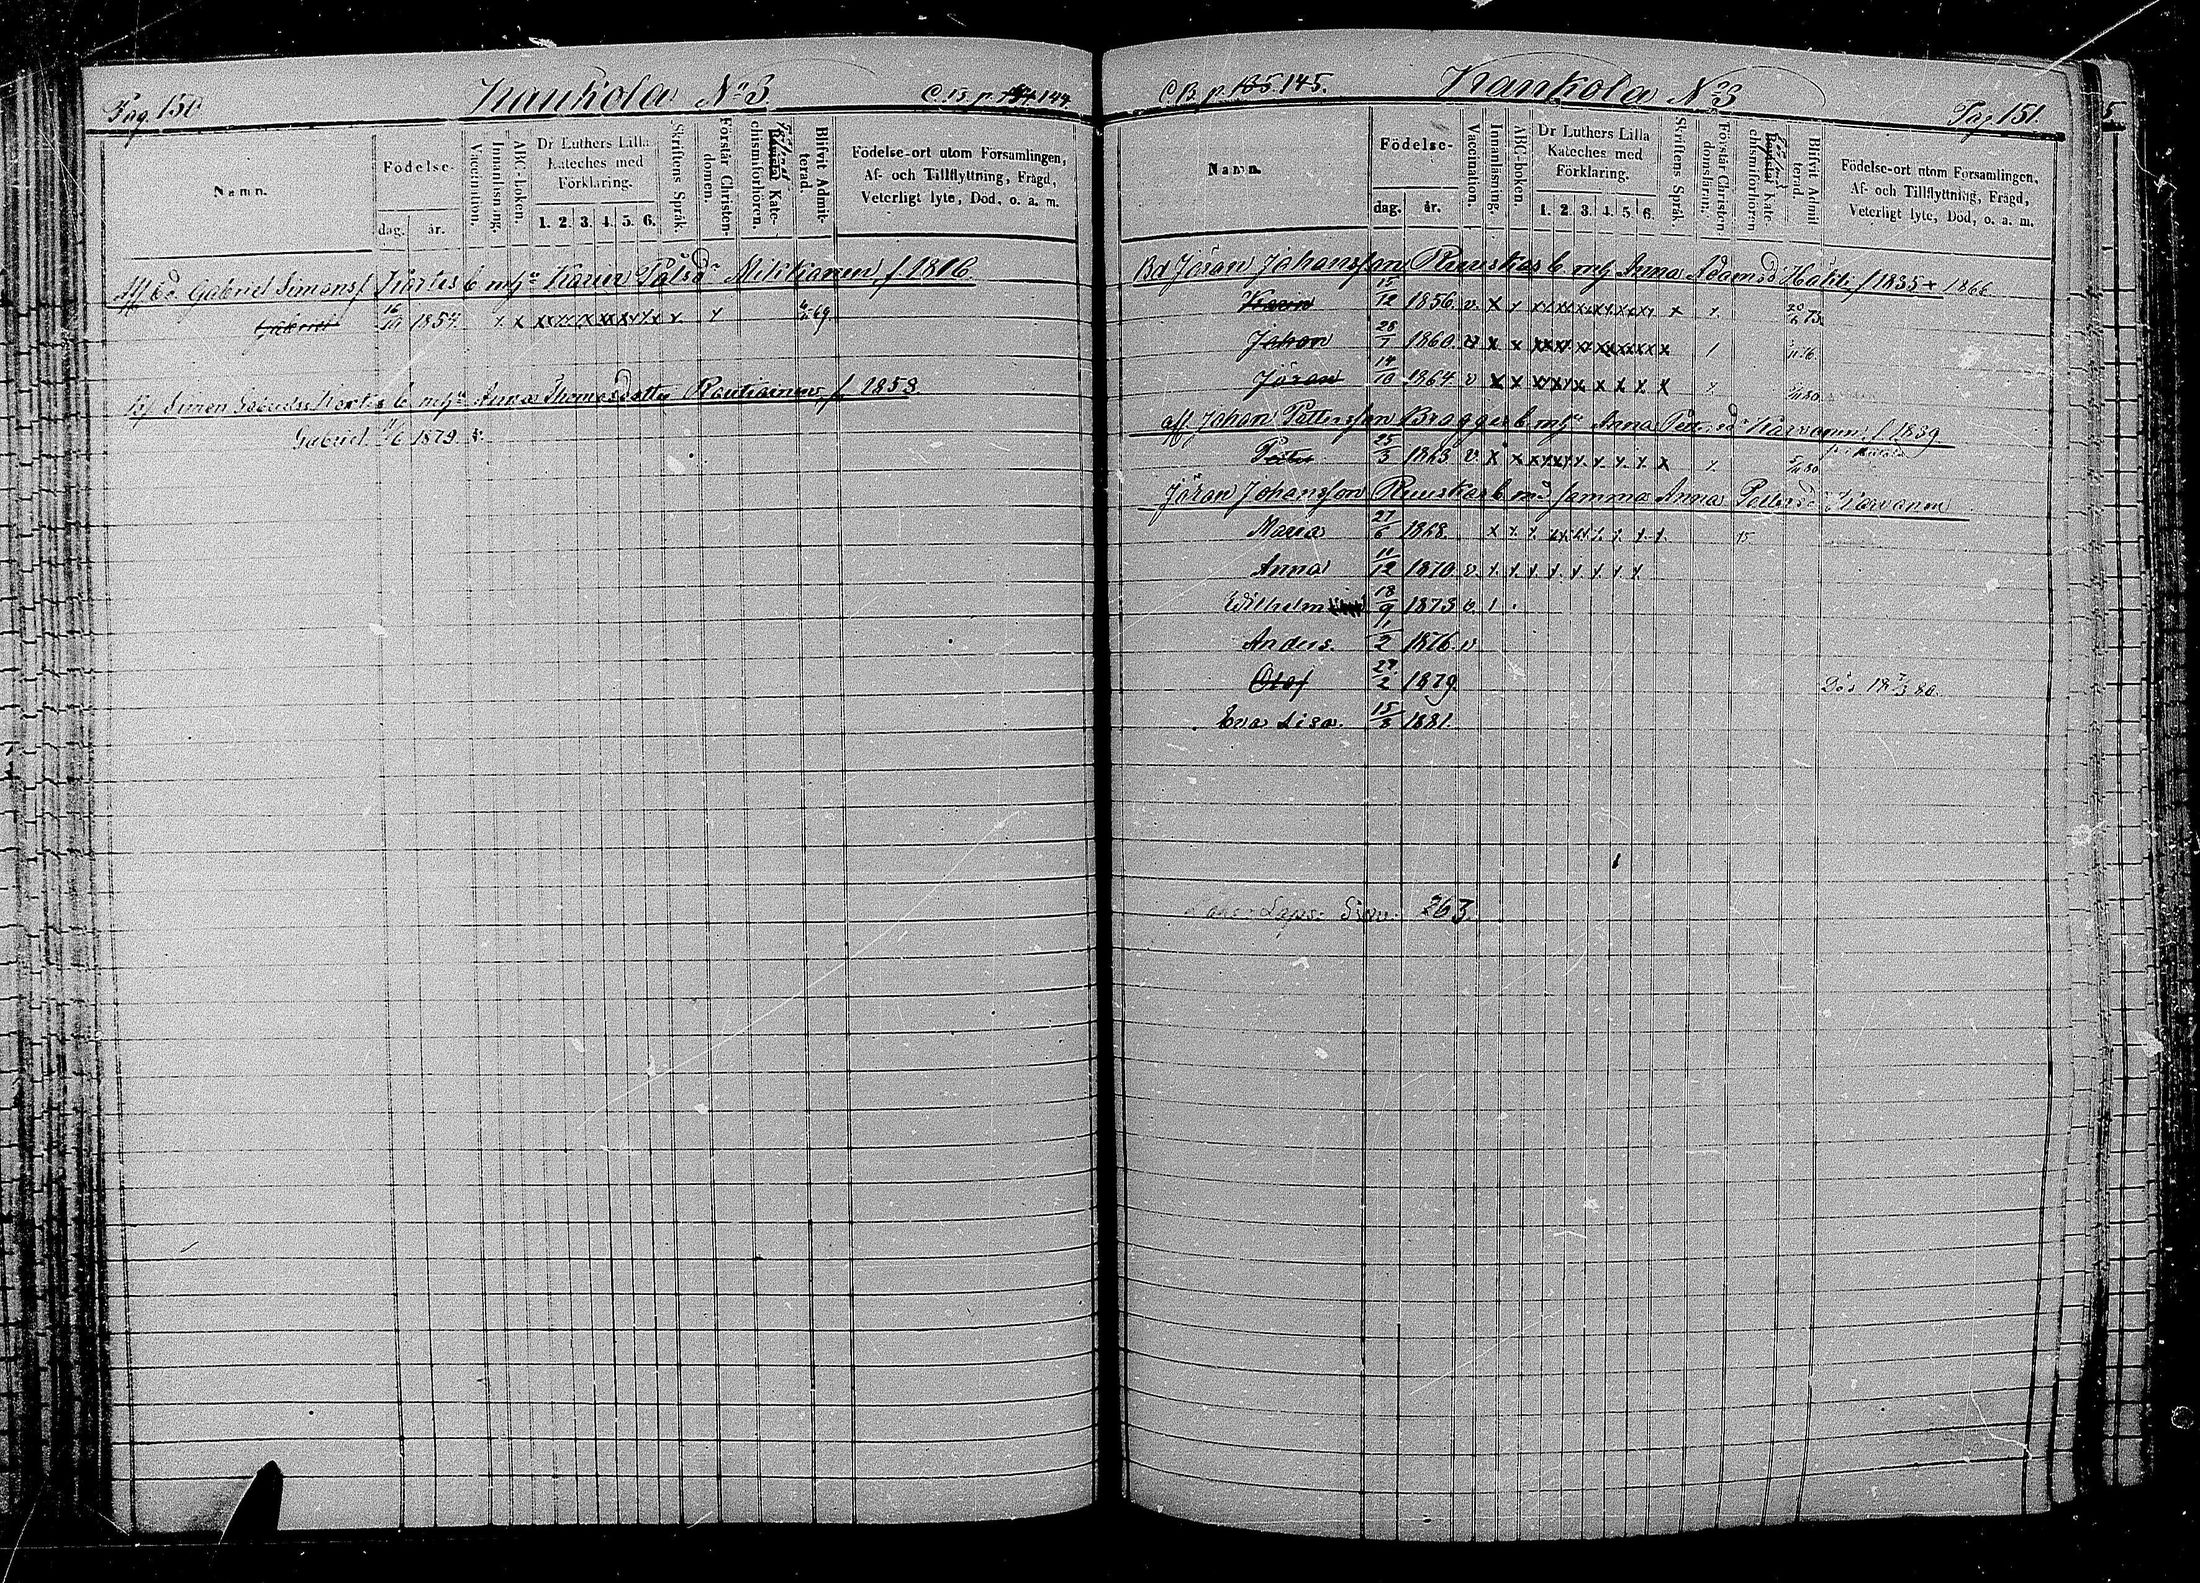 Pag. 150
Kankola No 3
C. B. p. 144.
Namn.
Födelse-
dag.
år.
Vaccination.
Innanläsning.
ABC-boken.
Dr Luthers Lilla
Kateches med
Förklaring.
1. 2. 3. 4. 5. 6.
Skriftens Språk.
Förstår Christen-
domen.
Kate-
chismiförhören.
Blifvit Admit-
terad.
Födelse-ort utom Församlingen,
Af- och Tillflyttning, Frägd,
Veterligt lyte, Död, o. a. m.
Gabriel Simonss Kortes b mhu Karin Pålsdr Mikkianen f 1816
Gabriel 16/10 1854. x x x x x x x x x x x x x x 69
Simon Gabrielss Kortes b mhu Anna Thomasdotter Rautiainen f 1858.
Gabriel 1879.
C. B. p. 135. 145.
Kankola No 3
Pag. 151.
Namn.
Födelse-
dag.
år.
Vaccination.
Innanläsning.
ABC-boken.
Dr Luthers Lilla
Kateches med
Förklaring.
1. 2. 3. 4. 5. 6.
Skriftens Språk.
Förstår Christen
domslärn:
Kate-
chismiförhören
Blifvit Admit
terad.
Födelse-ort utom Församlingen,
Af- och Tillflyttning, Frägd,
Veterligt lyte, Död, o. a. m.
Bd Jöran Johansson Ruuskas b mh Anna Adamsd Häkli f 1835 + 1866
Karin 15/12 1856. v. x x x x x x x x x x x 73
Johan 28/7 1860. v x x x x x x x x x x x 76.
Jöran 14/10 1864. v x x x x x x x x x x 80.
aff Johan Pettersson Bragges b mhu Anna Pettersdr Karvonen f 1839
Petter 25/3 1863 v. x x x x x x x x x x x 80
Jöran Johansson Ruuskas b md samma Anna Pettersd Karvonen
Maria 27/6 1868. x x x x x x x x x x
Anna 11/12 1870. v. x x x x x x x x
Wilhelm 18/9 1873 v. 1
Anders. 1/2 1876. v
Olof 27/2 1879.
Död 18 7/3 80.
Eva Lisa. 15/3 1881.
263